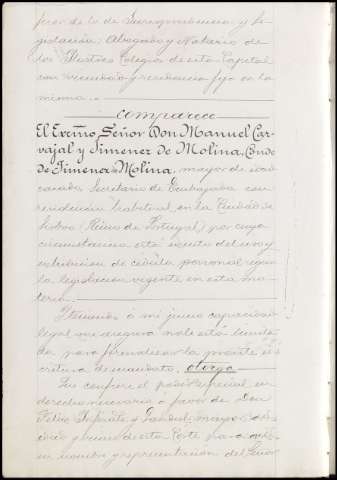 peror de lo de Jurisprudencia y Le-
gislación: Abogado y Notario de
los Ilustres Colegios de esta Capital
con vecindad y residencia fija en la
misma.
comparece
El Excmo. Señor Don Manuel Car-
vajal y Jimenez de Molina, Conde
de Jimena de Molina, mayor de edad
casado, Secretario de Embajada con
residencia habitual en la Ciudad de
Lisboa (Reino de Portugal) por cuya
circunstancia está exento del uso y
exhibicion de cédula personal segun
la legislacion vigente en esta ma-
teria.
Teniendo á mi juicio capacidad
legal me asegura no le está limita-
da para formalizar la presente es-
critura de mandato, otorga
Que confiere el poder especial en
derecho necesario á favor de Don
Felix y mayor
vecino de esta Corte para que
en nombre y representacion del Señor